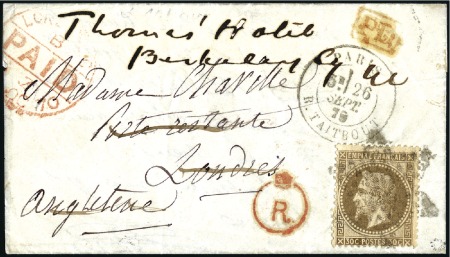 Thomas' Hotel
Berkeley Sq
LONDON
PAID
PD
PARIS
26
SEPT.
R. TAITBOUT
Madame Charette
Poste restante
Londres
Angleterre
R.
EMPIRE FRANÇAIS
30C POSTES 30C